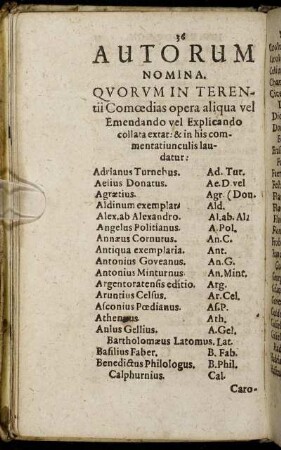 36
AUTORUM
NOMINA.
QVORVM IN TEREN-
tii Comœdias opera aliqua vel
Emendando vel Explicando
collata extat: & in his com-
mentatiunculis lau-
datur:
Adrianus Turnebus. Ad. Tur.
Aelius Donatus. Ae.D vel
Agrætius. Agr (Don.
Aldinum exemplar. Ald.
Alex.ab Alexandro. Al.ab. Al:
Angelus Politianus. A.Pol.
Annæus Cornutus. An.C.
Antiqua exemplaria. Ant.
Antonius Goveanus. An.G.
Antonius Minturnus. An.Mint.
Argentoratensis editio. Arg.
Aruntius Celsus. Ar.Cel.
Asconius Pœdianus. As.P.
Athenæus Ath.
Aulus Gellius. A.Gel.
Bartholomæus Latomus. Lat.
Basilius Faber. B. Fab.
Benedictus Philologus. B.Phil.
Calphurnius. Cal.
Caro-